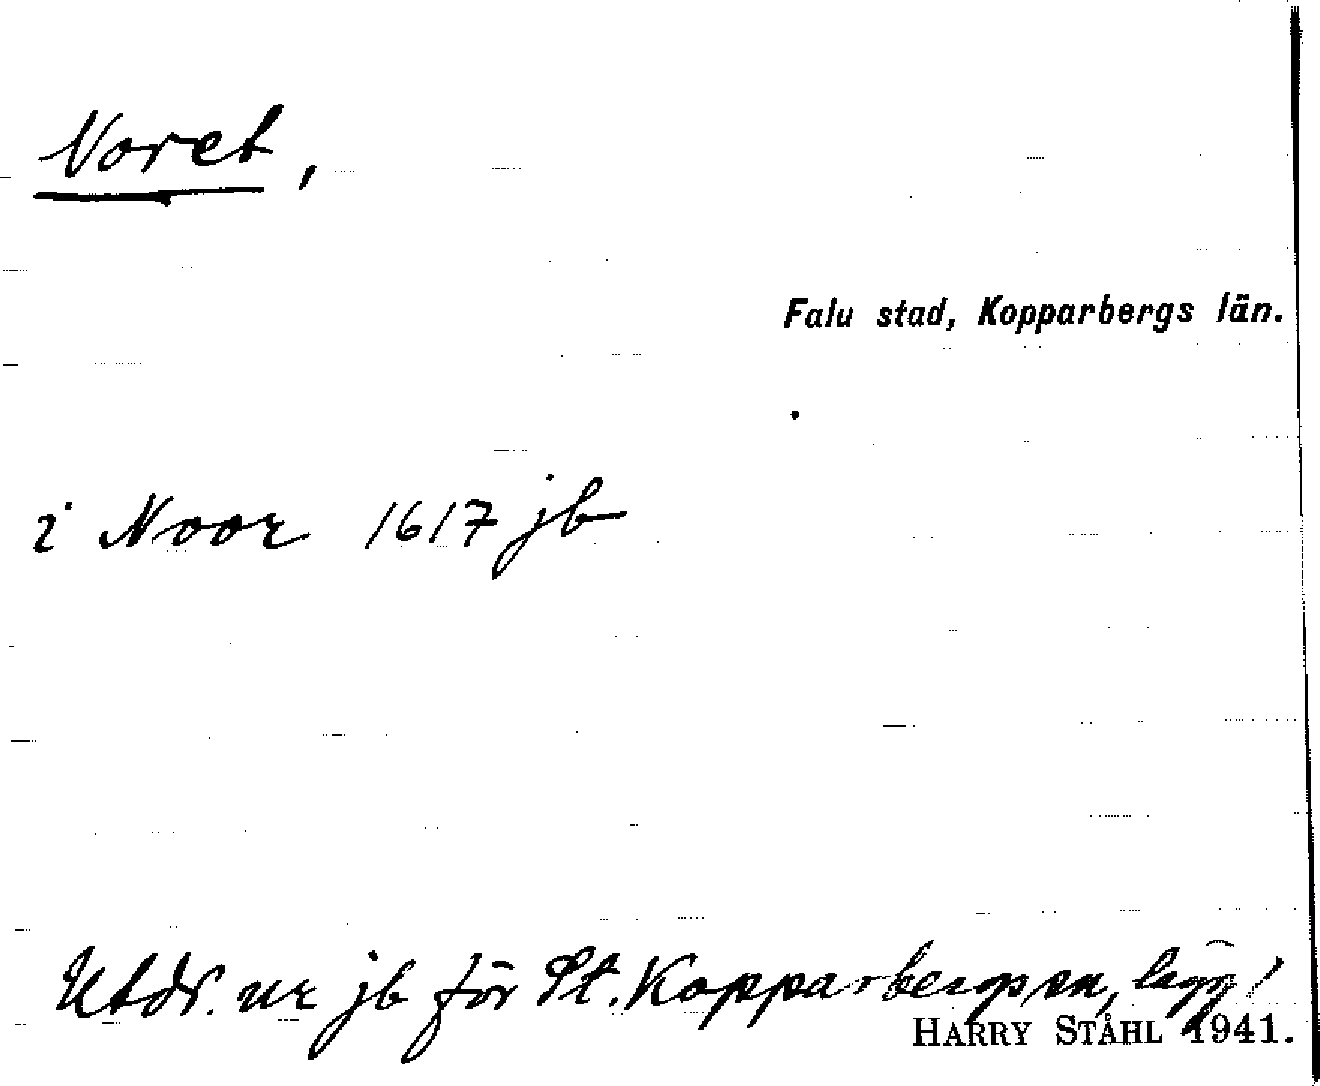 Noret,
Falu stad, Kopparbergs län.
i Noor 1617 jb
Utdr. ur jb för St. Kopparbergs sn,
HARRY STÅHL 1941.